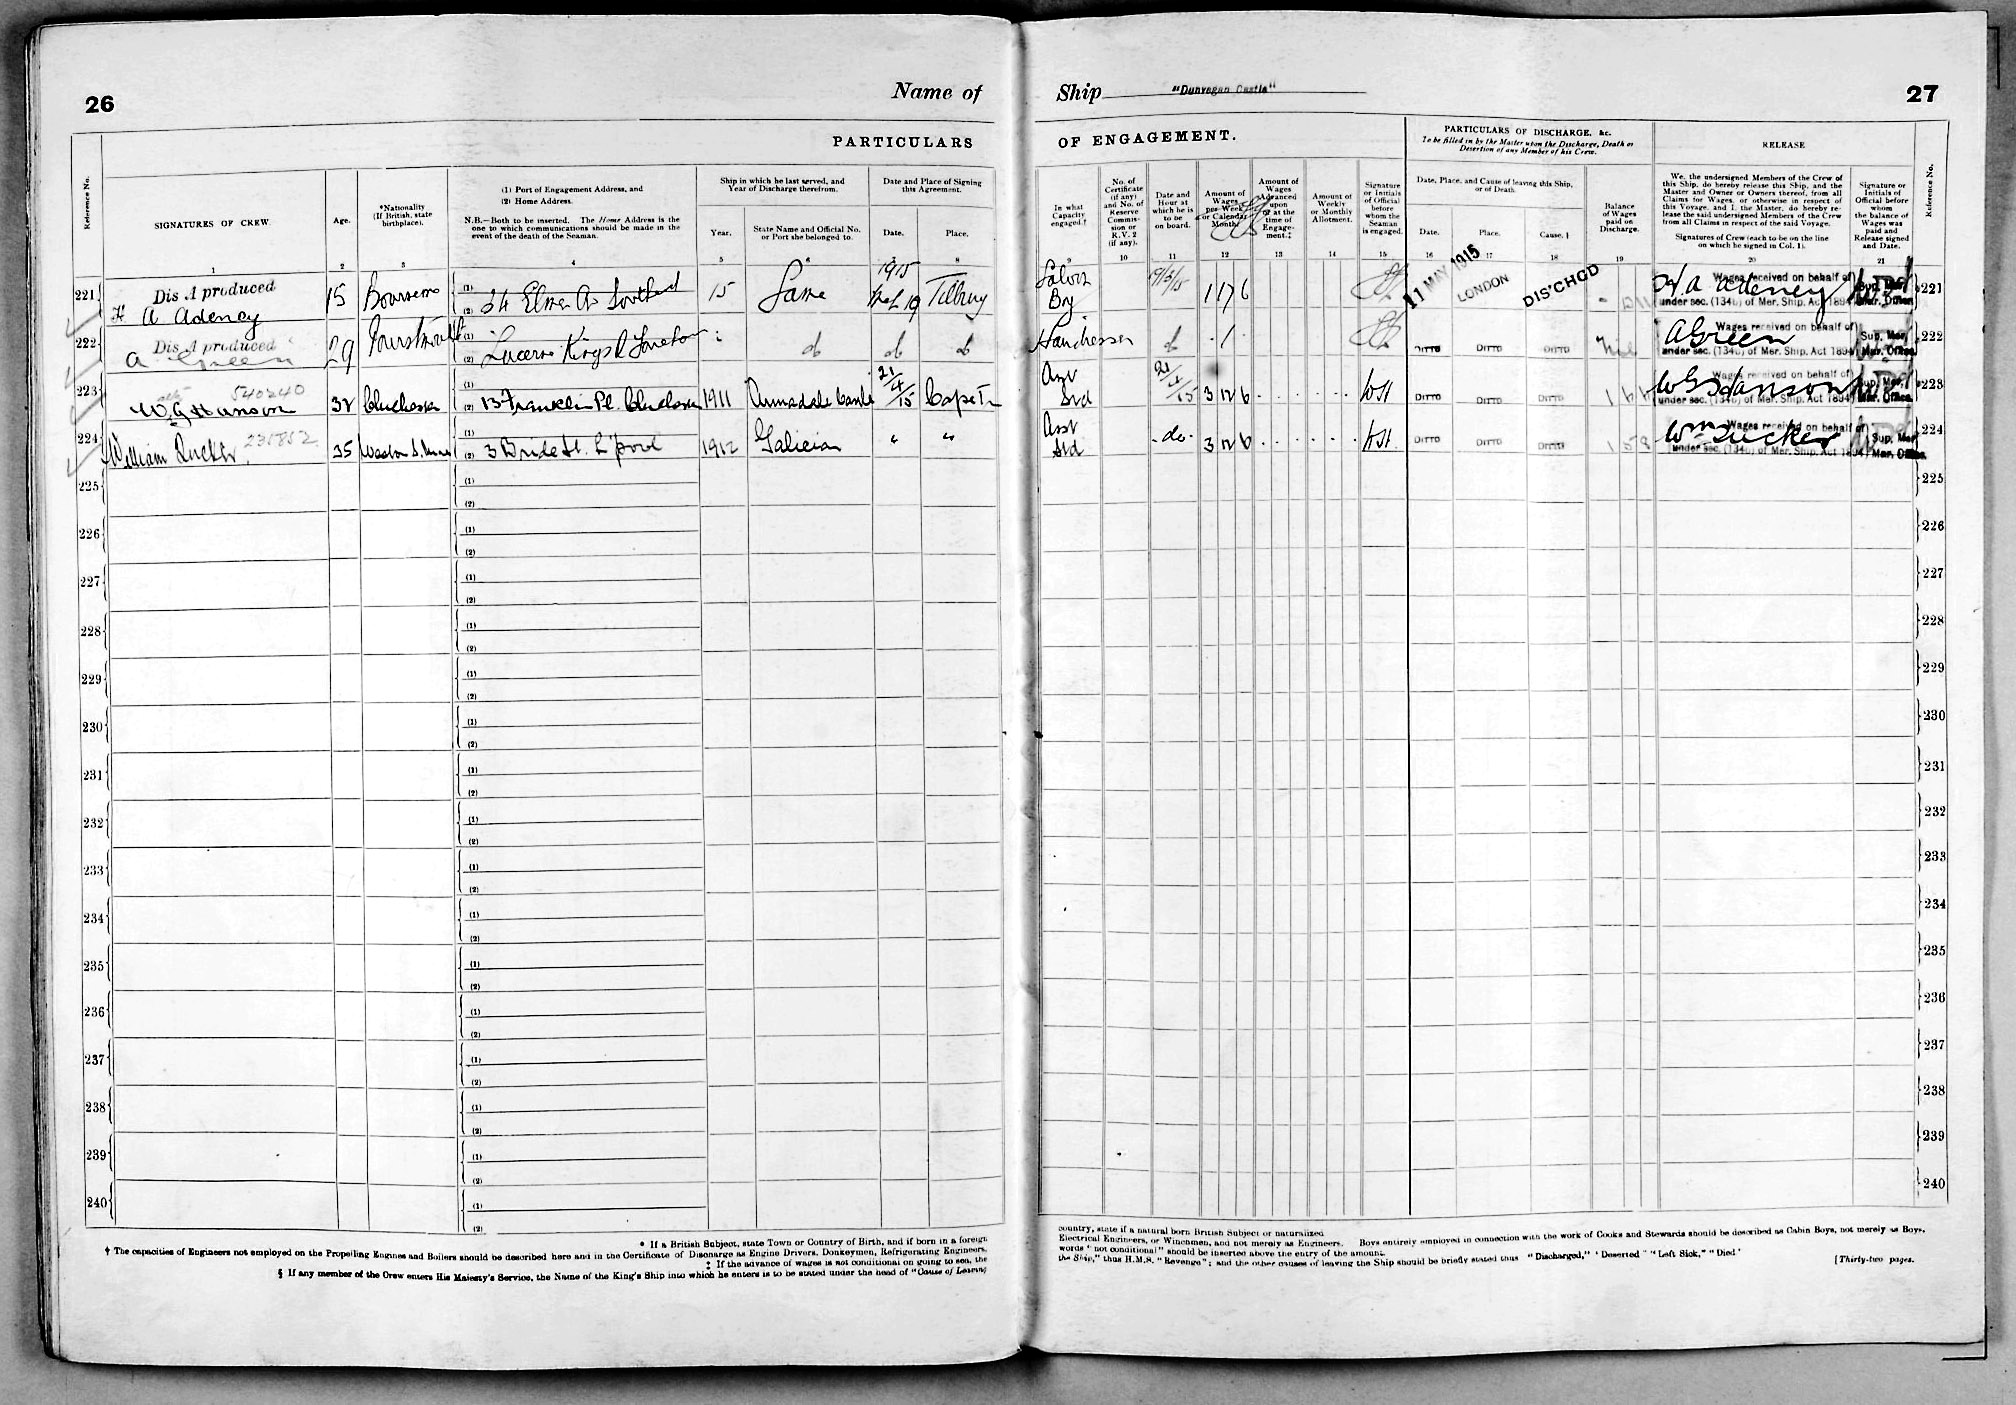 26
Name of
PARTICULARS
Reference No.
SIGNATURES OF CREW.
Age.
*Nationality
(If British, state
birthplace).
(1) Port of Engagement Address, and
(2) Home Address.
N.B.—Both to be inserted. The Home Address is the
one to which communications should be made in the
event of the death of the Seaman.
Ship in which he last served, and
Year of Discharge therefrom.
Year.
State Name and Official No.
or Port she belonged to.
Date and Place of Signing
this Agreement.
Date.
Place.
1 2 3 4 5 6 7 8
1915
221 Dis A produced
H A Adeney 15 (1) (2) 34 15 Same 19 Tilbury
222 Dis A produced
A Green 29 (1) (2) Lucerne Kings do do do
223 540240
W G Hanson 32 (1) (2) 13 Franklin Pl. 1911 21/4/15 Cape Tn
224 William Tucker 231852 35 (1) (2) 3 Bride St. L'pool 1912 Galician " "
225 (1)
(2)
226 (1)
(2)
227 (1)
(2)
228 (1)
(2)
229 (1)
(2)
230 (1)
(2)
231 (1)
(2)
232 (1)
(2)
233 (1)
(2)
234 (1)
(2)
235 (1)
(2)
236 (1)
(2)
237 (1)
(2)
238 (1)
(2)
239 (1)
(2)
240 (1)
(2)
* If a British Subject, state Town or Country of Birth, and if born in a foreign
† The capacities of Engineers not employed on the Propelling Engines and Boilers should be described here and in the Certificate of Discharge as Engine Drivers, Donkeymen, Refrigerating Engineers,
‡ If the advance of wages is not conditional on going to sea, the
§ If any member of the Crew enters His Majesty's Service, the Name of the King's Ship into which he enters is to be stated under the head of "Cause of Leaving
Ship "Dunvegan Castle"
27
OF ENGAGEMENT.
PARTICULARS OF DISCHARGE, &c.
To be filled in by the Master upon the Discharge, Death or
Desertion of any Member of his Crew.
RELEASE
Reference No.
In what
Capacity
engaged.†
No. of
Certificate
(if any)
and No. of
Reserve
Commis-
sion or
R.V. 2
(if any).
Date and
Hour at
which he is
to be
on board.
Amount of
Wages
per Week
or Calendar
Month.
Amount of
Wages
Advanced
upon
or at the
time of
Engage-
ment.‡
Amount of
Weekly
or Monthly
Allotment.
Signature
or Initials
of Official
before
whom the
Seaman
is engaged.
Date, Place, and Cause of leaving this Ship,
or of Death.
Date.
Place.
Cause.§
Balance
of Wages
paid on
Discharge.
We, the undersigned Members of the Crew of
this Ship, do hereby release this Ship, and the
Master and Owner or Owners thereof, from all
Claims for Wages, or otherwise in respect of
this Voyage, and I, the Master, do hereby re-
lease the said undersigned Members of the Crew
from all Claims in respect of the said Voyage.
Signatures of Crew (each to be on the line
on which he signed in Col. 1).
Signature or
Initials of
Official before
whom
the balance of
Wages was
paid and
Release signed
and Date.
9 10 11 12 13 14 15 16 17 18 19 20 21
Boy 1 17 6 11 MAY 1915 LONDON DIS'CHGD H A Adeney 221
Wages received on behalf of
under sec. (134b) of Mer. Ship. Act 1894 Sup. Mer. Mar. Office.
do 1 DITTO DITTO DITTO Nil A Green 222
Wages received on behalf of
under sec. (134b) of Mer. Ship. Act 1894 Sup. Mer. Mar. Office.
Asst
Std 21/4/15 3 12 6 WH DITTO DITTO DITTO W G Hanson 223
Wages received on behalf of
under sec. (134b) of Mer. Ship. Act 1894 Sup. Mer. Mar. Office.
Asst
Std -do- 3 12 6 WH DITTO DITTO DITTO 1 5 8 Wm Tucker 224
Wages received on behalf of
under sec. (134b) of Mer. Ship. Act 1894 Sup. Mer. Mar. Office.
225
226
227
228
229
230
231
232
233
234
235
236
237
238
239
240
country, state if a natural born British Subject or naturalized
Electrical Engineers, or Winchmen, and not merely as Engineers. Boys entirely employed in connection with the work of Cooks and Stewards should be described as Cabin Boys, not merely as Boys.
words "not conditional" should be inserted above the entry of the amount.
the Ship," thus H.M.S. "Revenge"; and the other causes of leaving the Ship should be briefly stated thus "Discharged," "Deserted" "Left Sick," "Died"
[Thirty-two pages.